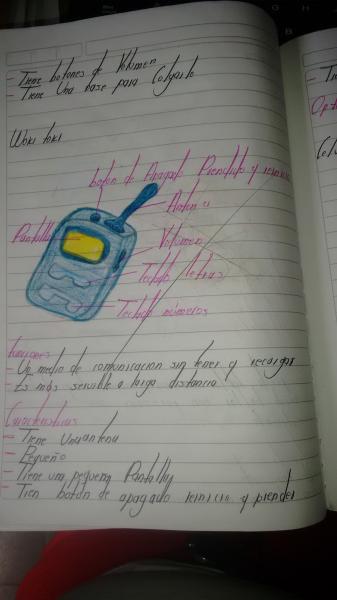 - Tiene botones de Volumen
- Tiene Una base para Colgarlo
Woki toki
boton de Apagado Prendido y reinicio
Antena
Pantalla
Volumen
Teclado letras
Teclado números
funciones
- Un medio de comunicacion sin tener y recargar
- Es más servible a larga distancia
Características
- Tiene Una antena
- Pequeño
- Tiene una pequeña Pantalla
- Tien botón de apagado reinicio y prender